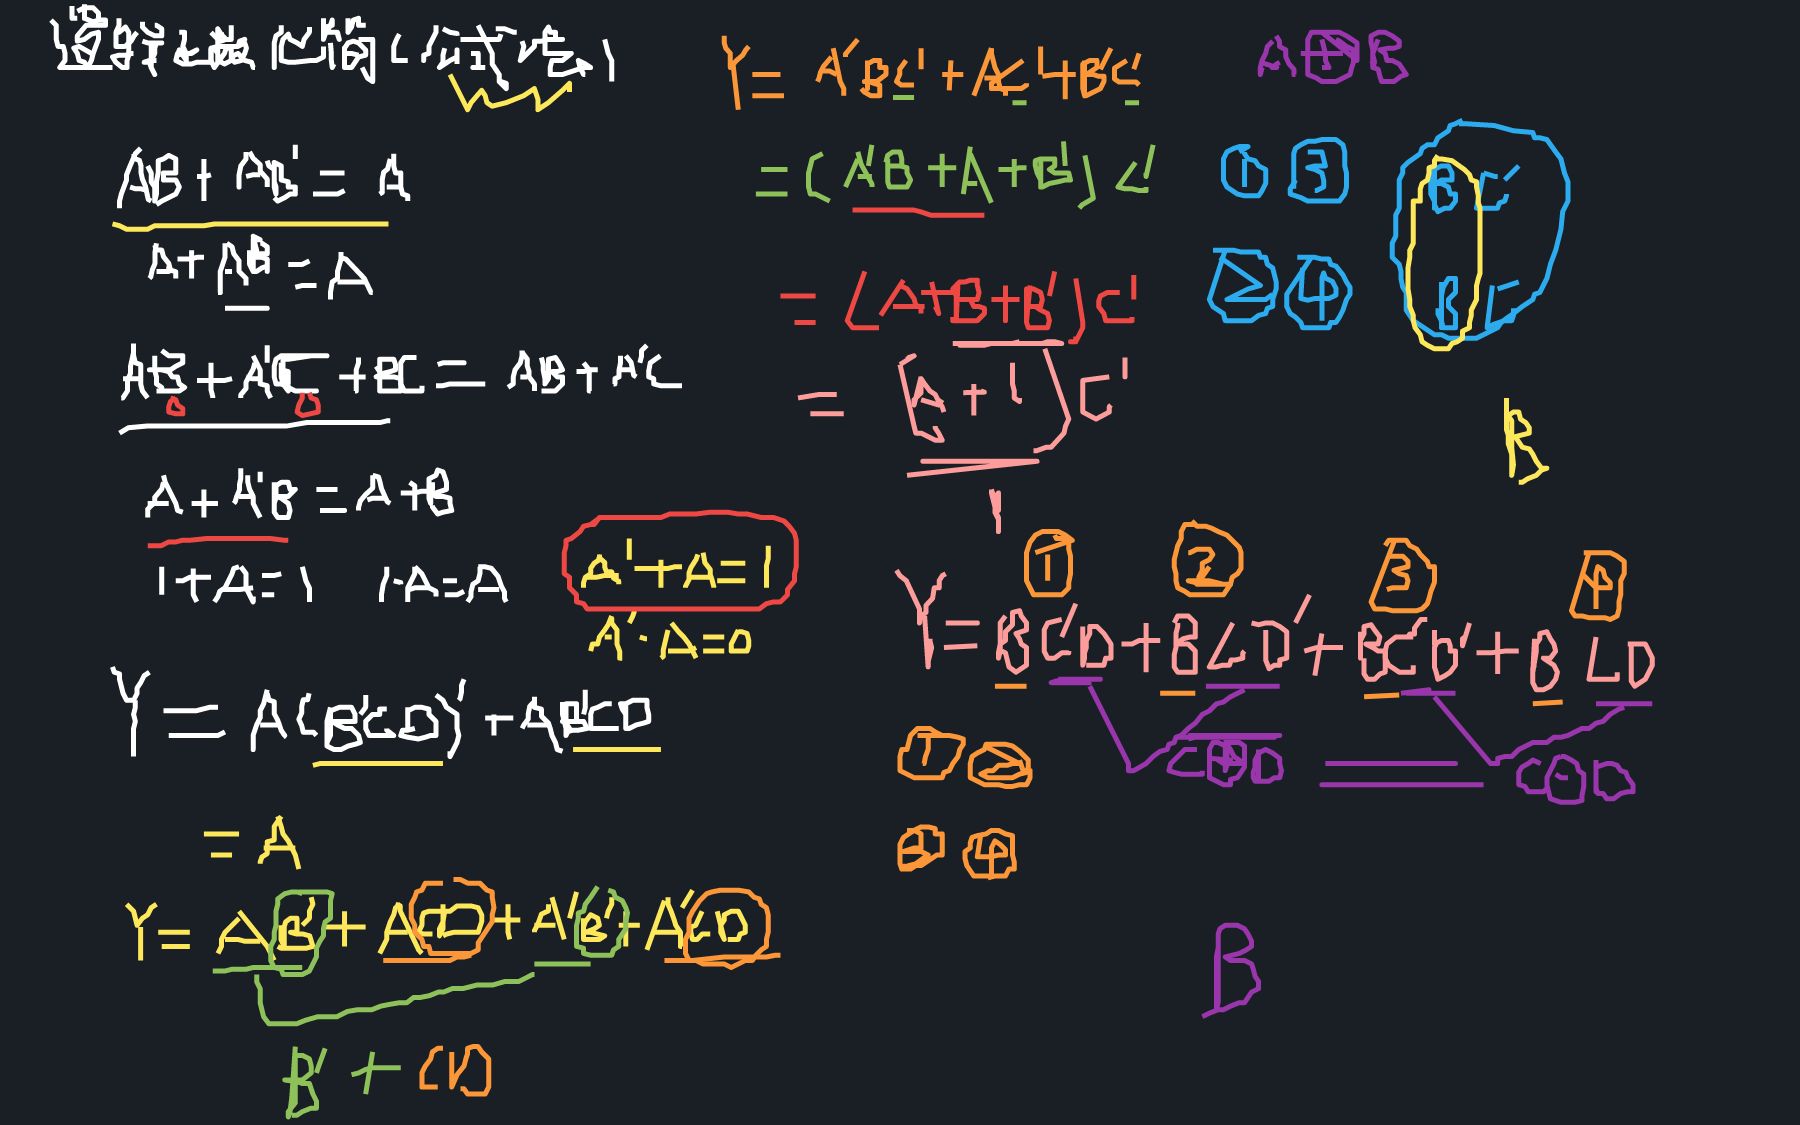 逻辑函数化简（公式法）
AB + AB' = A
A + AB = A
AB + A'C + BC = AB + A'C
A + A'B = A + B
1 + A = 1    1·A = A
A' + A = 1
A'·A = 0
Y = A(B'CD)' + AB'CD
= A
Y = AB' + ACD + A'B' + A'CD
B' + CD
Y = A'BC' + AC' + B'C'
= (A'B + A + B')C'
= (A + B + B')C'
= (A + 1)C'
1
A⊕B
① ③ BC'
② ④ B
B
① ② ③ ④
Y = BC'D + BCD' + BC'D' + BCD
① ②  C⊕D  C⊙D
③ ④
B